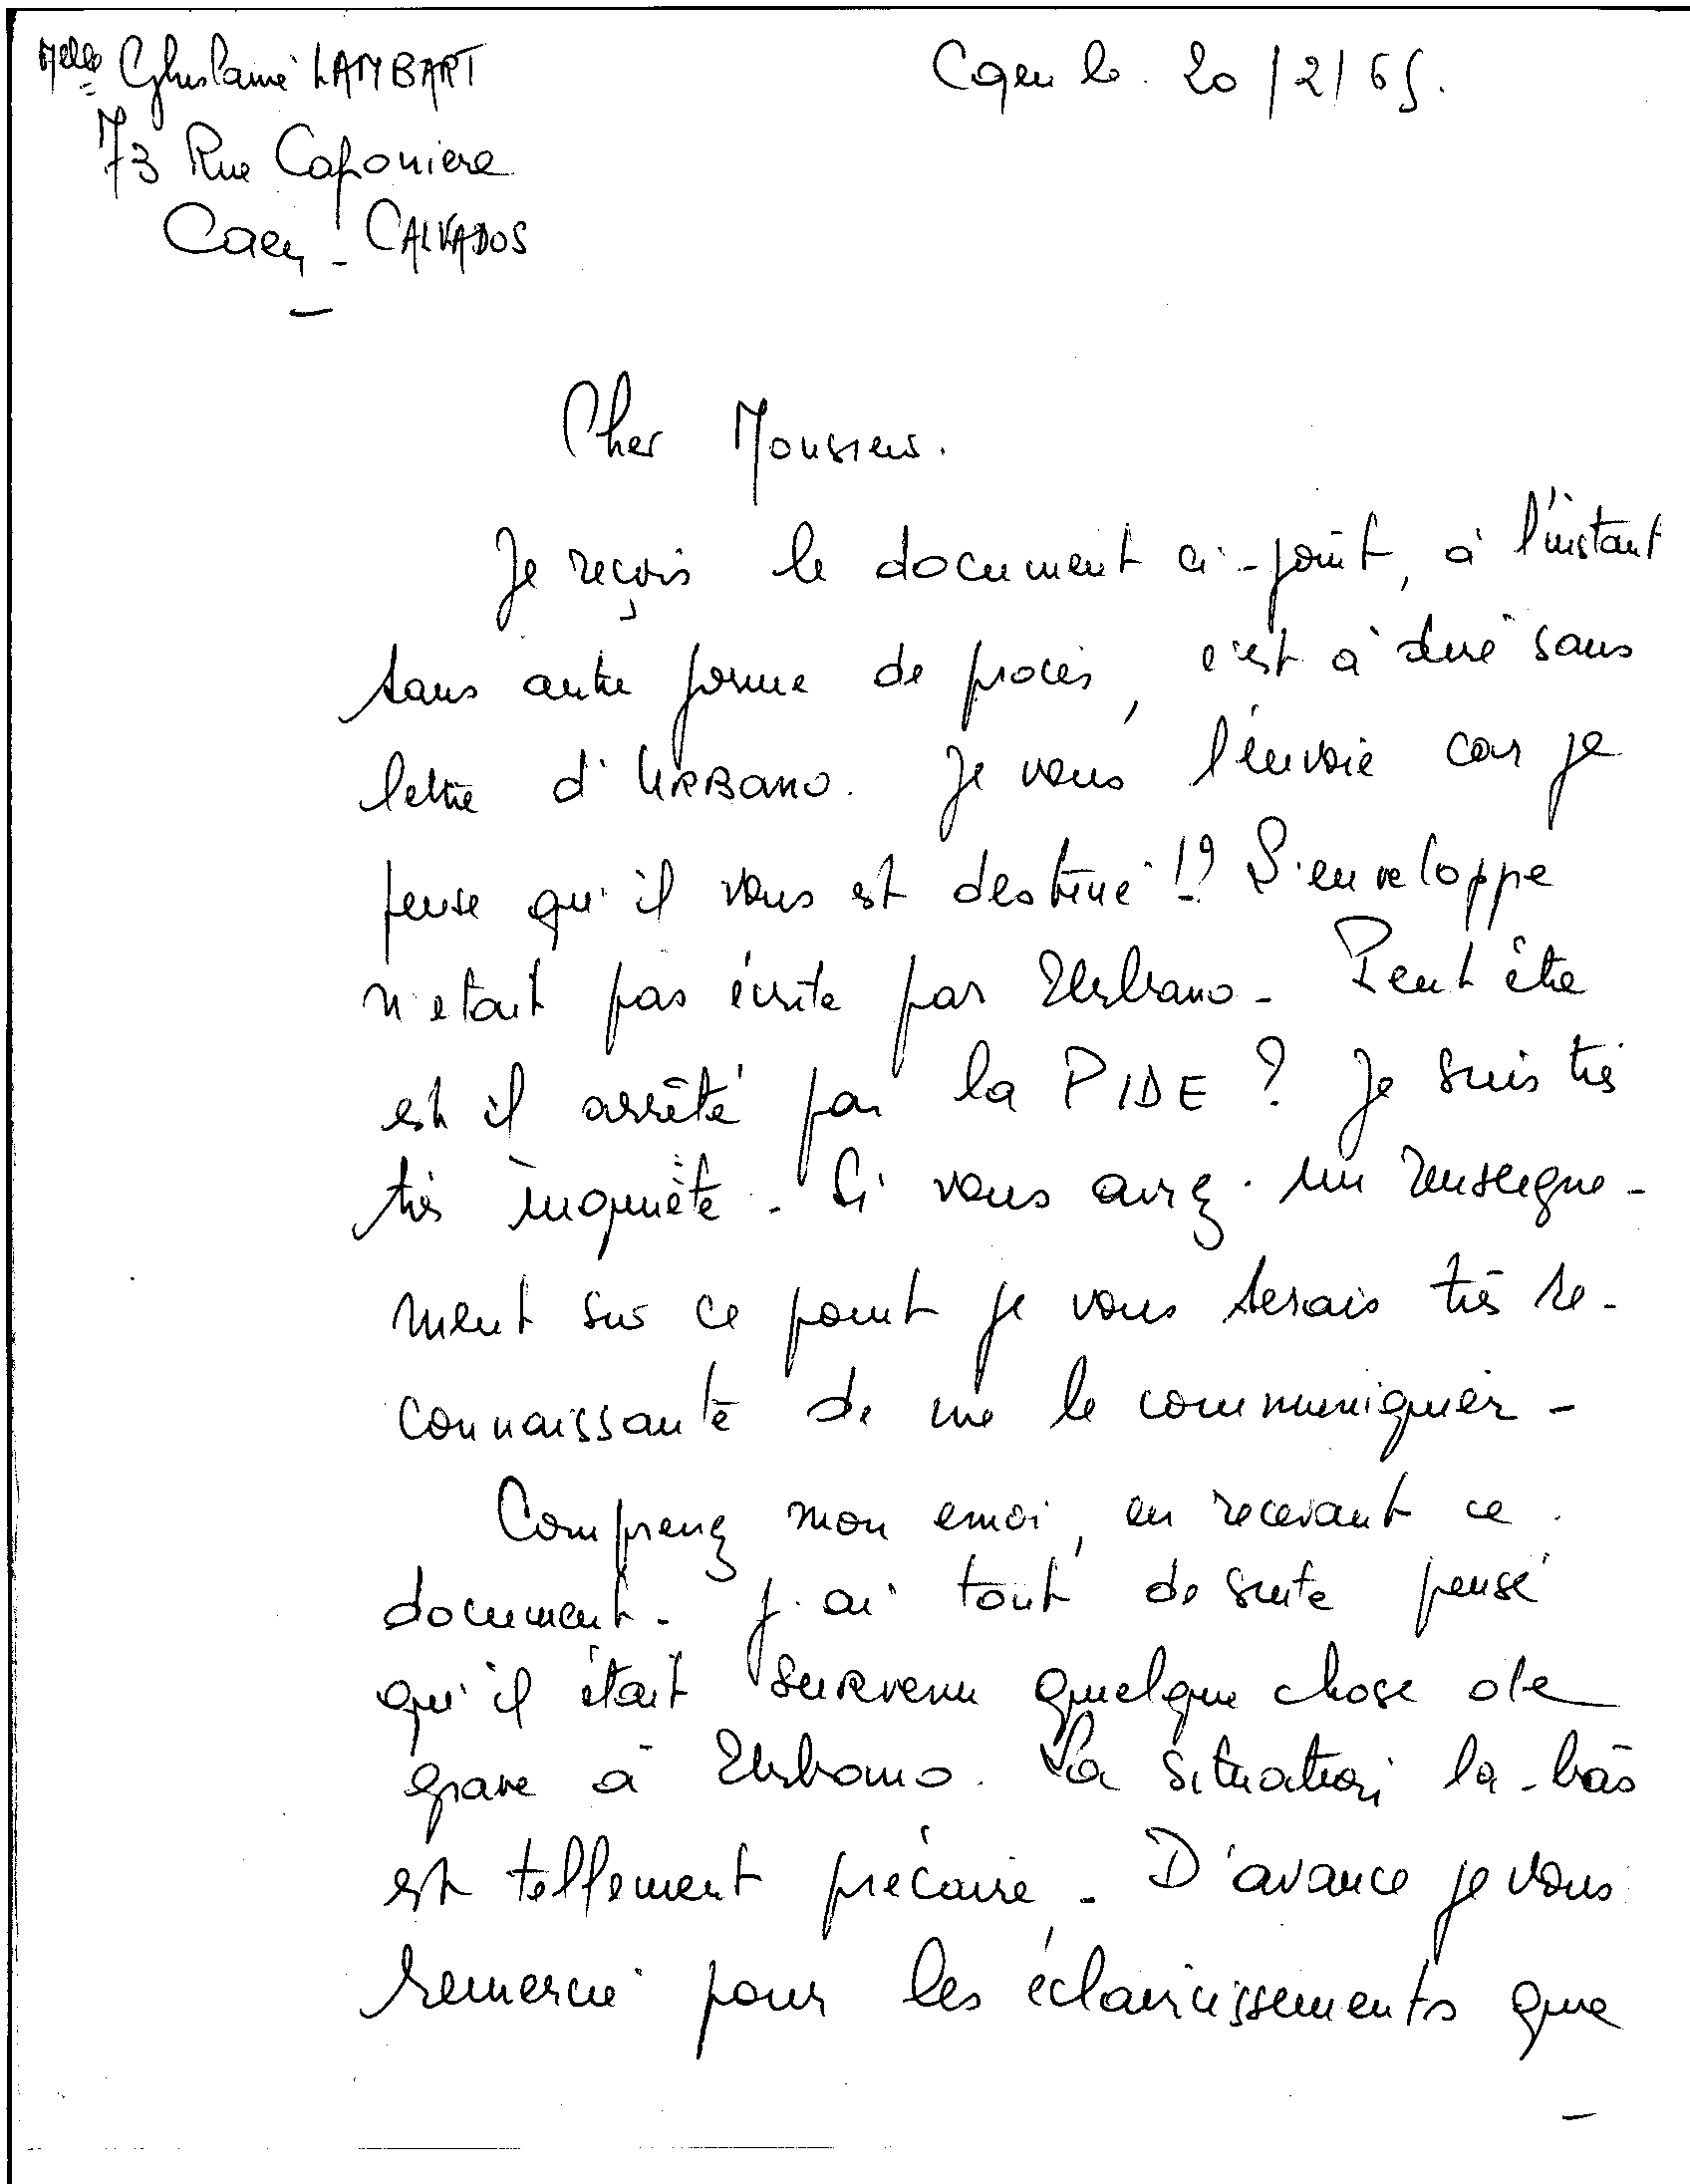 Melle Ghislaine LAMBART
Caen le. 20/2/65.
73 Rue Caponiere
Caen - CALVADOS
Cher Monsieur.
Je reçois le document ci-joint, à l'instant
sans autre forme de procès, c'est à dire sans
lettre d'URBANO. Je vous l'envoie car je
pense qu'il vous est destiné !? L'enveloppe
n'etait pas écrite par Urbano - Peut être
est il arrêté par la PIDE ? Je suis très
très inquiète - Si vous avez un renseigne-
ment sur ce point je vous serais très re-
connaissante de me le communiquer -
Comprenez mon emoi, en recevant ce
document - j'ai tout de suite pensé
qu'il était survenu quelque chose de
grave à Urbano. La situation la-bas
est tellement précaire, - D'avance je vous
remercie pour les éclaircissements que